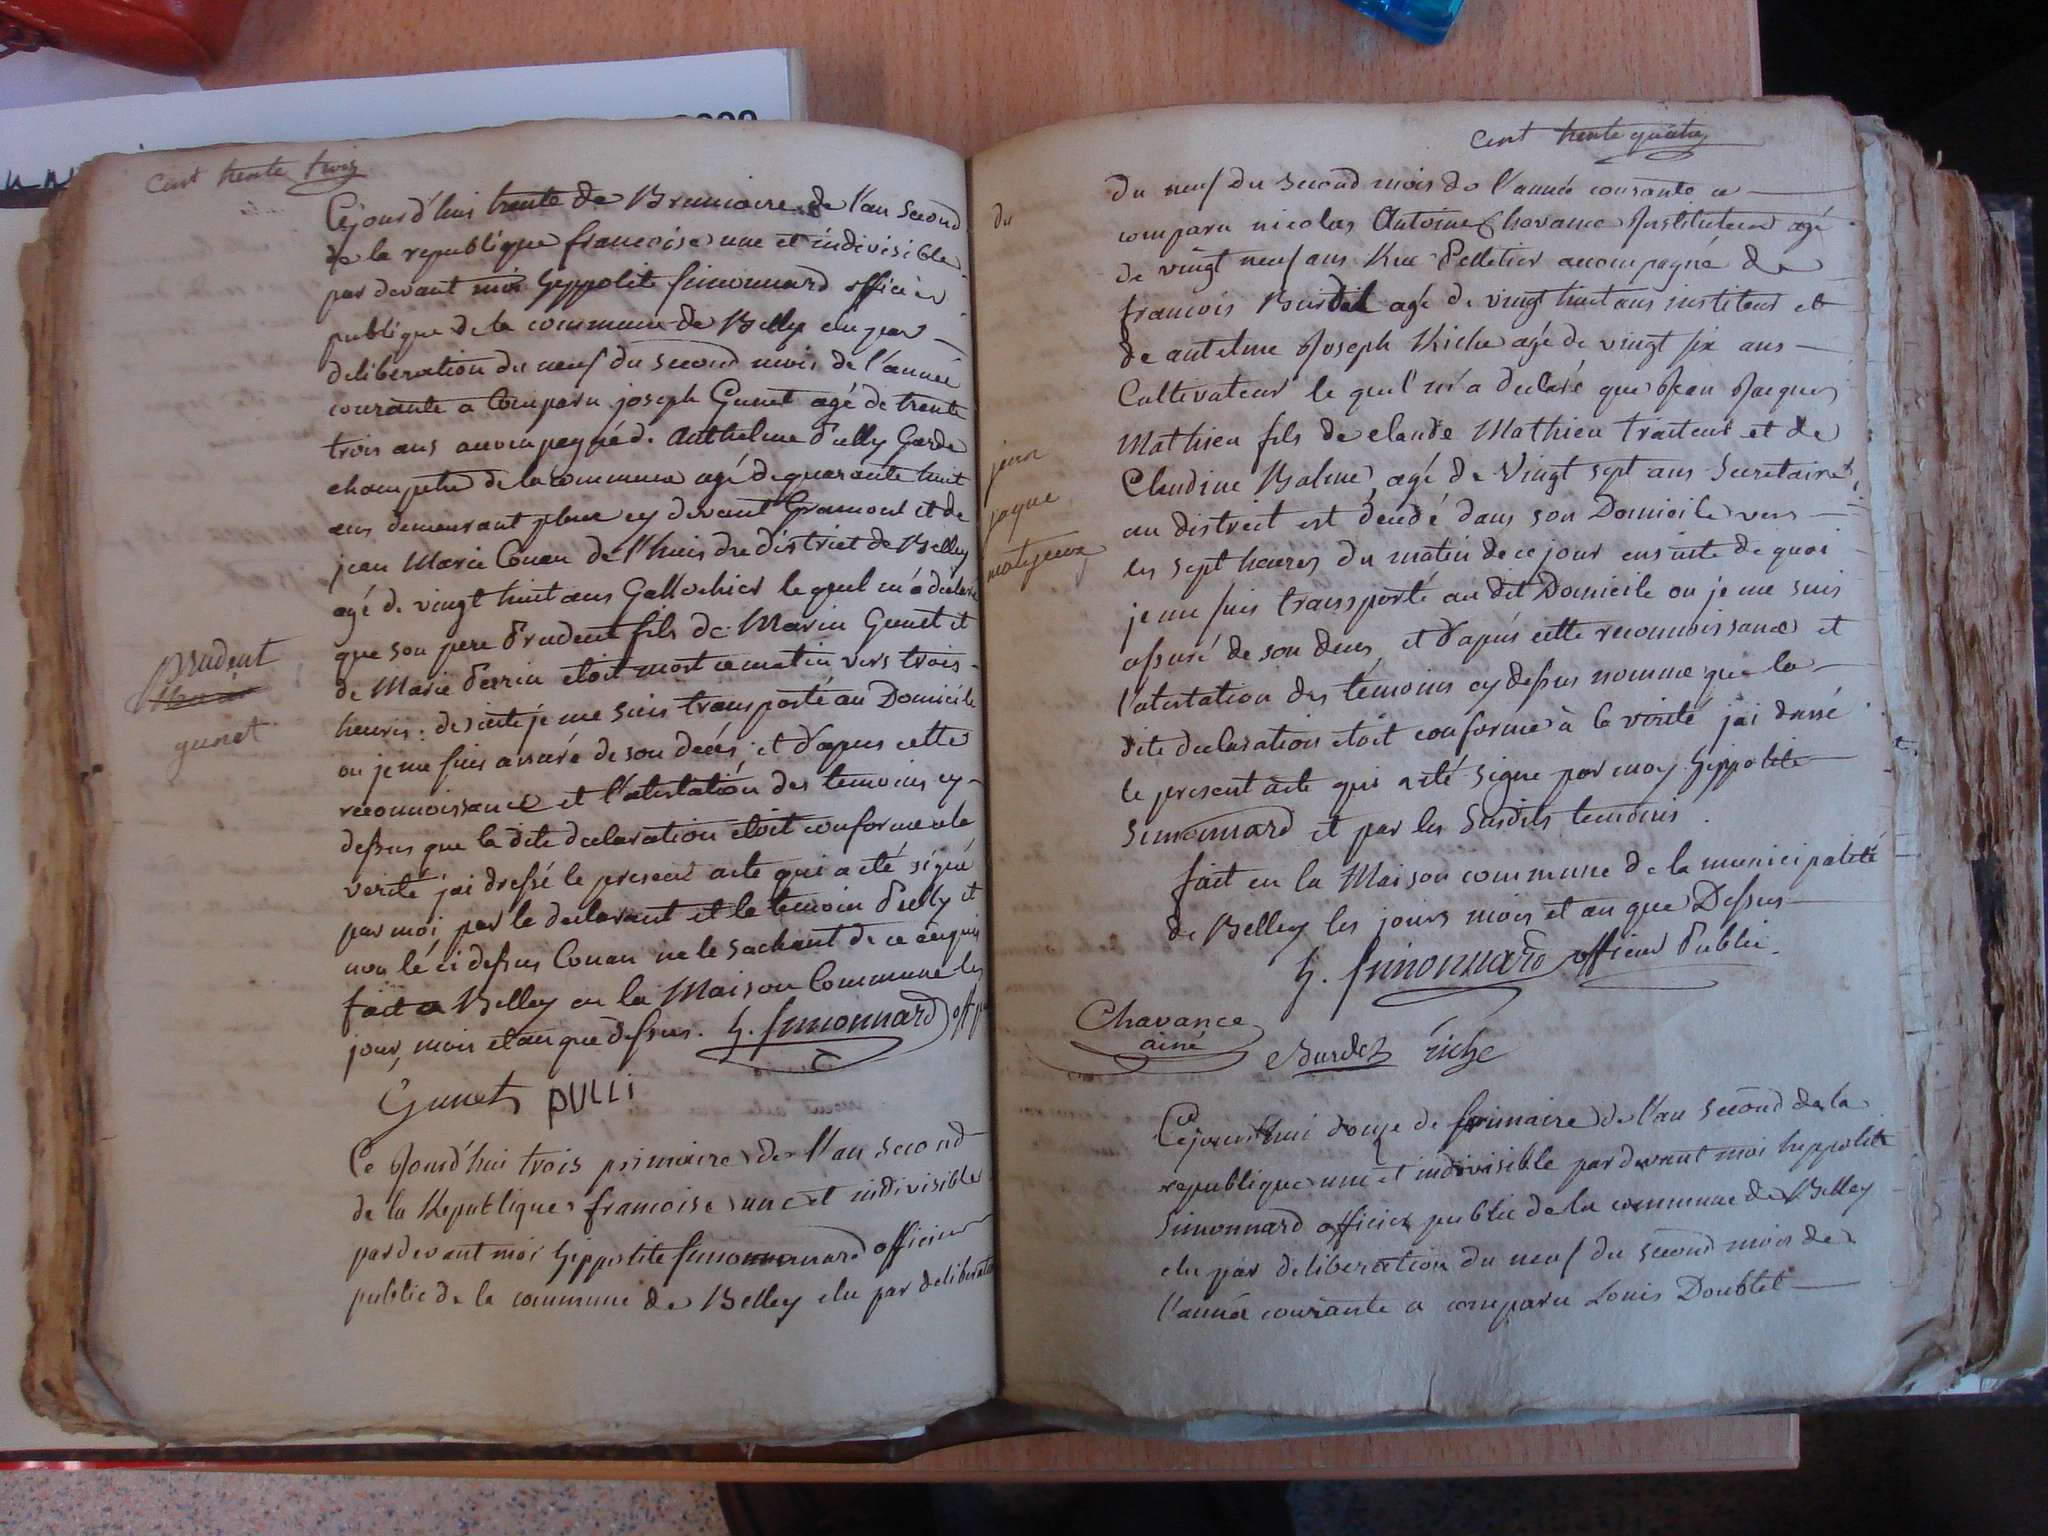 cent trente trois
Cejourd'hui trente de Brumaire de l'an second
de la republique francoise une et indivisible
par devant moi hippolite simonnard officier
publique de la commune de Belley elu par
deliberation du neuf du second mois de l'année
courante a comparu joseph Gunet agé de trente
trois ans accompagné d. Anthelme Pully Garde
champetre de la commune agé de quarante huit
ans demeurant place cy devant Gramont et de
jean Marie Conan de l'huis du district de Belley
agé de vingt huit ans Gallochier le quel m'a déclaré
que son pere Prudent fils de Marin Gunet et
de Marie Perrin etoit mort ce matin vers trois
heures: de suite je me suis transporté au Domicile
ou je me suis assuré de son deces; et d'apres cette
reconnoissance et l'atestation des temoins cy-
dessus que la dite declaration etoit conforme a la
verité j'ai dressé le present acte qui a été signé
par moi par le declarant et le temoin Pully et
non le ci dessus Conan ne le sachant de ce enquis
fait a Belley en la Maison Commune les
jour, mois et an que dessus. h. simonnard off pu
Gunet PULLI
Prudent
gunet
Ce Jourd'hui trois primaire de l'an second
de la Republique francoise une et indivisible
pardevant moi hippolite simonnard officier
public de la commune de Belley elu par deliberation
du
cent trente quatre
du neuf du second mois de l'année courante a
comparu nicolas Antoine Chavance Instituteur agé
de vingt neuf ans Rue Pelletier accompagné de
francois Burdet agé de vingt huit ans instituteur et
de antelme Joseph Riche agé de vingt six ans
Cultivateur le quel m'a declaré que Jean Jacques
Mathieu fils de claude Mathieu traiteur et de
Claudine Balme, agé de Vingt sept ans Secretaire
au district est décédé dans son Domicile vers
les sept heures du matin de ce jour ensuite de quoi
je me suis transporté au dit Domicile ou je me suis
assuré de son deces, et d'apres cette reconnoissance et
l'atestation des témoins cy dessus nommé que la
dite declaration etoit conforme à la verité j'ai dressé
le present acte qui a été signe par moy hippolite
Simonnard et par les Susdits temoins.
fait en la Maison commune de la municipalité
de Belley les jours mois et an que Dessus
h. simonnard officier Public.
Chavance
ainé
Burdet riche
jean
jaque
Cejourd'hui douze de frimaire de l'an second de la
republique une et indivisible pardevant moi hippolite
Simonnard officier public de la commune de Belley
elu par deliberation du neuf du second mois de
l'année courante a comparu Louis Doublet